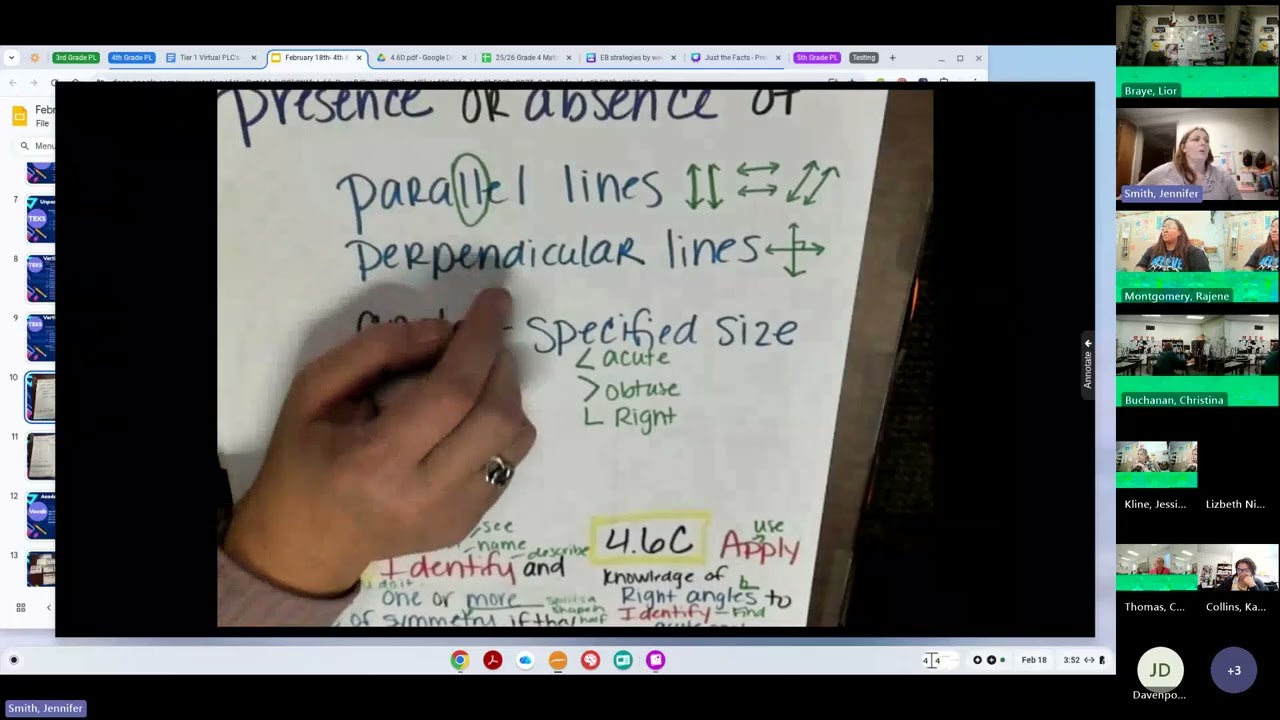 3rd Grade PL
4th Grade PL
Tier 1 Virtual PLC's
February 18th- 4th
4.6D.pdf - Google D
25/26 Grade 4 Mat
EB strategies by we
Just the Facts - Pre
5th Grade PL
Testing
File
Menu
7
TEKS
8
TEKS
9
TEKS
10
11
12
Vocab
13
presence OR absence of
parallel lines
perpendicular lines
- specified size
< acute
> obtuse
∟ Right
see
name
describe
Identify and
one or more
splits a
shape in
half
of symmetry if the
4.6C
use
Apply
knowledge of
Right angles to
Identify - Find
Annotate
Feb 18
3:52
Smith, Jennifer
Braye, Lior
Smith, Jennifer
Montgomery, Rajene
Buchanan, Christina
Kline, Jessi...
Lizbeth Ni...
Thomas, C...
Collins, Ka...
JD
Davenpo...
+3